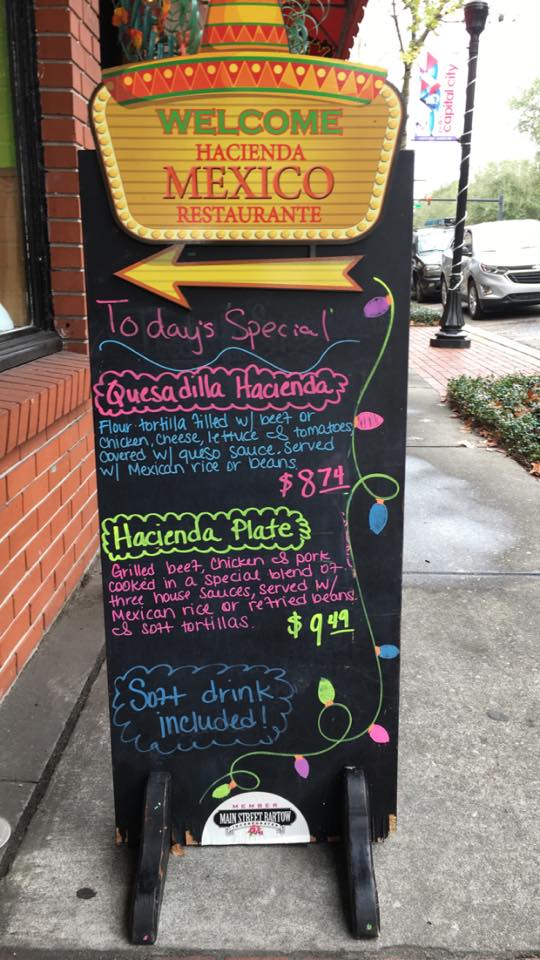 WELCOME
HACIENDA
MEXICO
RESTAURANTE
capital city
Today's Special
Quesadilla Hacienda
Flour tortilla filled w/ beef or
chicken, cheese, lettuce & tomatoes,
covered w/ queso sauce. Served
w/ Mexican rice or beans.
$8.74
Hacienda Plate
Grilled beef, chicken & pork
cooked in a special blend of
three house sauces, served w/
Mexican rice or refried beans
& soft tortillas.
$9.49
Soft drink
included!
MEMBER
MAIN STREET BARTOW
INCORPORATED